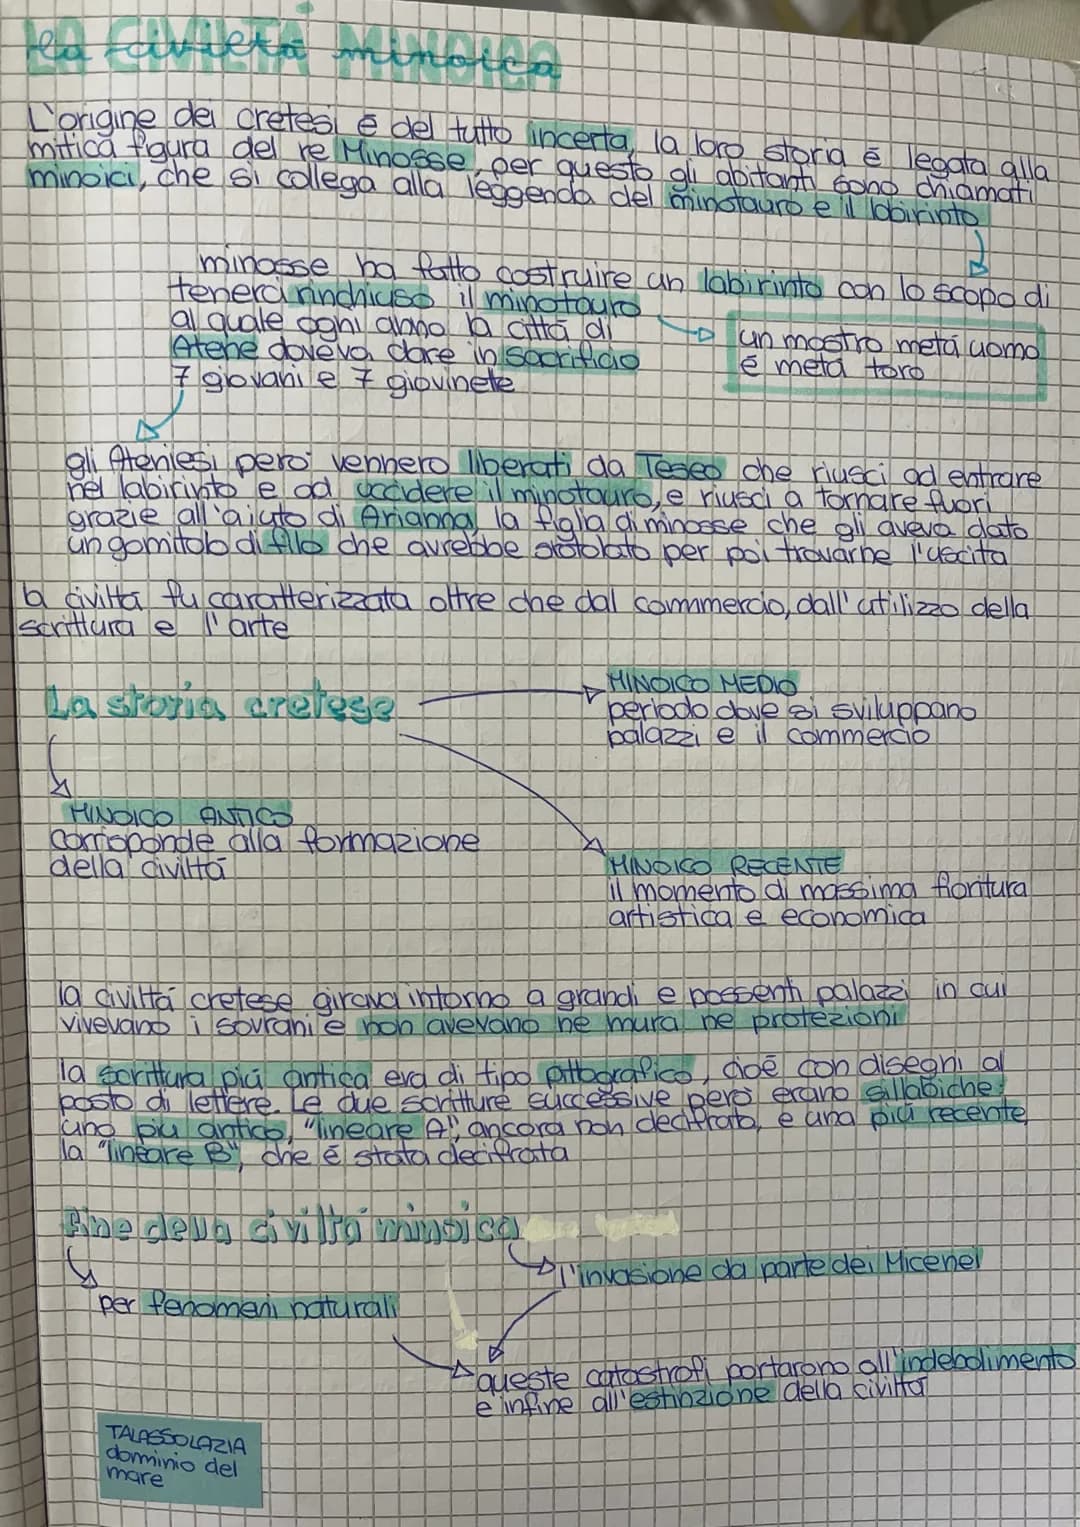 La civiltà minoica
L'origine dei cretesi é del tutto incerta, la loro storia é legata alla
mitica figura del re Minosse, per questo gli abitanti sono chiamati
minoici, che si collega alla leggenda del minotauro e il labirinto
minosse ha fatto costruire un labirinto con lo scopo di
tenerci rinchiuso il minotauro
al quale ogni anno la città di
Atene doveva dare in sacrificio
7 giovani e 7 giovinete
un mostro metá uomo
é metá toro
gli Ateniesi peró vennero liberati da Teseo che riusci ad entrare
nel labirinto e ad uccidere il minotauro, e riusci a tornare fuori
grazie all'aiuto di Arianna, la figlia di minosse che gli aveva dato
un gomitolo di filo che avrebbe srotolato per poi trovarne l'uscita
la civiltá fu caratterizzata oltre che dal commercio, dall'utilizzo della
scrittura e l'arte
La storia cretese
MINOICO MEDIO
periodo dove si sviluppano
palazzi e il commercio
MINOICO ANTICO
corrisponde alla formazione
della civiltá
MINOICO RECENTE
il momento di massima fioritura
artistica e economica
la civiltá cretese girava intorno a grandi e possenti palazzi in cui
vivevano i sovrani e non avevano ne mura ne protezioni
la scrittura piú antica era di tipo pittografico, cioé con disegni al
posto di lettere. Le due scritture successive peró erano sillabiche:
una piu antica, "lineare A", ancora non decifrata, e una piú recente,
la "lineare B", che é stata decifrata
Fine della civiltá minoica
l'invasione da parte dei Micenei
per fenomeni naturali
queste catastrofi portarono all'indebolimento
e infine all'estinzione della civiltá
TALASSOLAZIA
dominio del
mare